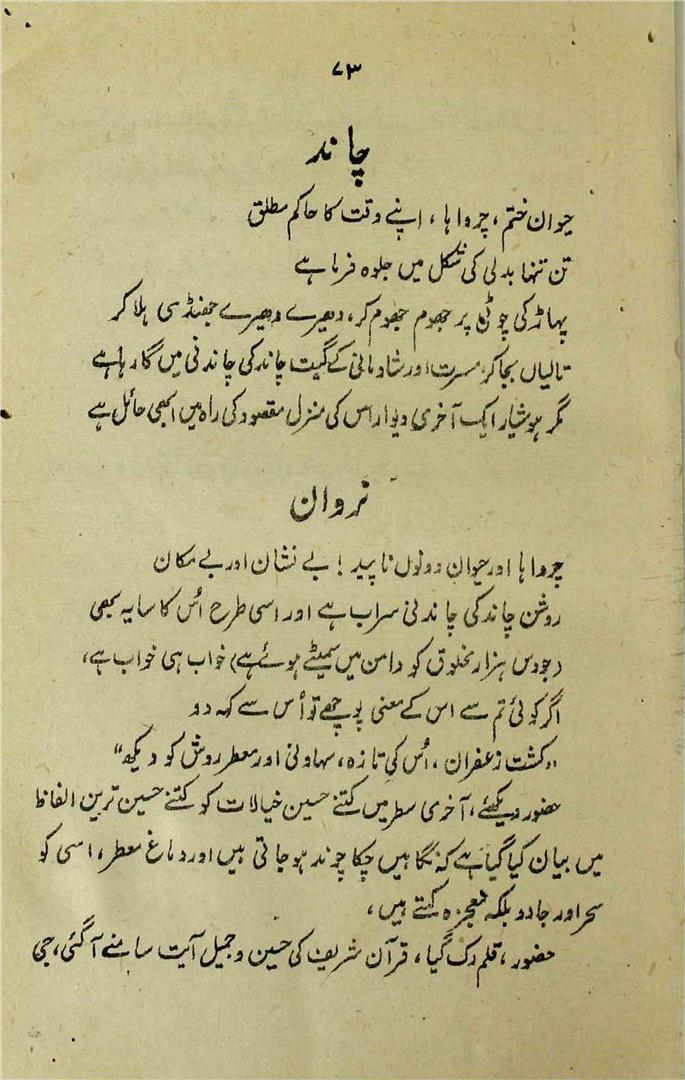 ۷۳
چاند
حیوان ختم، چرواہا، اپنے وقت کا حاکم مطلق
تن تنہا بدلی کی شکل میں جلوہ فرما ہے
پہاڑ کی چوٹی پر جھوم جھوم کر، دھیرے دھیرے جھنڈی سی ہلا کر
تالیاں بجا کر مسرت اور شادمانی کے گیت چاند کی چاندنی میں گا رہا ہے
مگر ہوشیار ایک آخری دیوار اس کی منزل مقصود کی راہ میں ابھی حائل ہے
نروان
چرواہا اور حیوان دونوں ناپید! بے نشان اور بے مکان
روشن چاند کی چاندنی سراب ہے اور اسی طرح اُس کا سایہ بھی
(جو دس ہزار مخلوق کو دامن میں سمیٹے ہوئے ہے) خواب ہی خواب ہے،
اگر کوئی تم سے اس کے معنی پوچھے تو اُس سے کہہ دو
"کشت زعفران، اُس کی تازہ، سہاونی اور معطر روش کو دیکھ"
حضور دیکھئے، آخری سطر میں کتنے حسین خیالات کو کتنے حسین ترین الفاظ
میں بیان کیا گیا ہے کہ نگاہیں چکا چوند ہو جاتی ہیں اور دماغ معطر، اسی کو
سحر اور جادو بلکہ معجزہ کہتے ہیں،
حضور، قلم رک گیا، قرآن شریف کی حسین و جمیل آیت سامنے آ گئی، جی